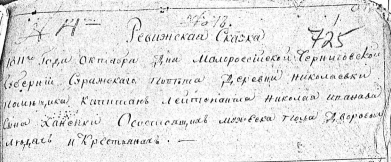 № 18.
725
Ревижская Сказка
1811го года Октября Дня Малороссійской Черниговской
Губерніи Стражскаго Повѣта Деревни Николаевки
Помѣщика Капитанъ Лейтенанта Николая Иванова
Сына Ханенки О состоящихъ мужеска пола Дворовыхъ
людяхъ и Крестьянахъ. —